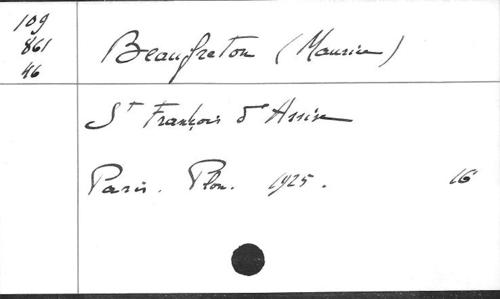 109
861
46
Beaufreton (Maurice)
St François d'Assise
Paris. Plon. 1925. 16